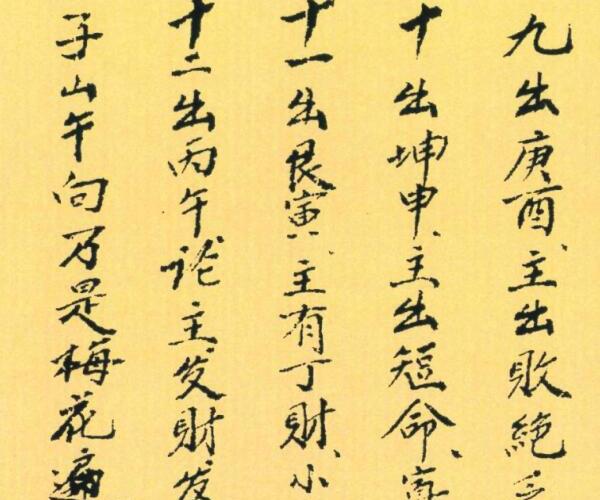 九出庚酉、主出敗絶
十出坤申、主出短命、
十一出艮寅、主有丁財、小
十二出丙午论主发財发
子山午向乃是梅花遍